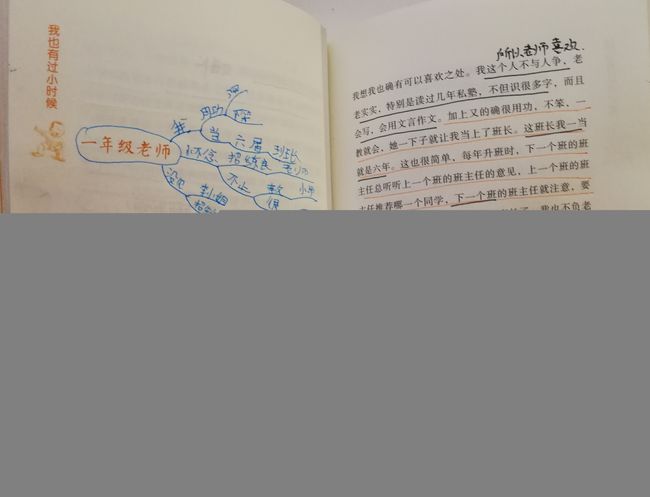 我也有过小时候
一年级老师
我
用功
当
六届
班长
怀念
不止
教
没见
所以老师喜欢.
我想我也确有可以喜欢之处。我这个人不与人争，老
老实实，特别是读过几年私塾，不但识很多字，而且
会写，会用文言作文。加上又的确很用功，不笨，一
教就会，她一下子就让我当上了班长。这班长我一当
就是六年。这也很简单，每年升班时，下一个班的班
主任总听听上一个班的班主任的意见，上一个班的班
主任推荐哪一个同学，下一个班的班主任就注意，要
了，我也不负老